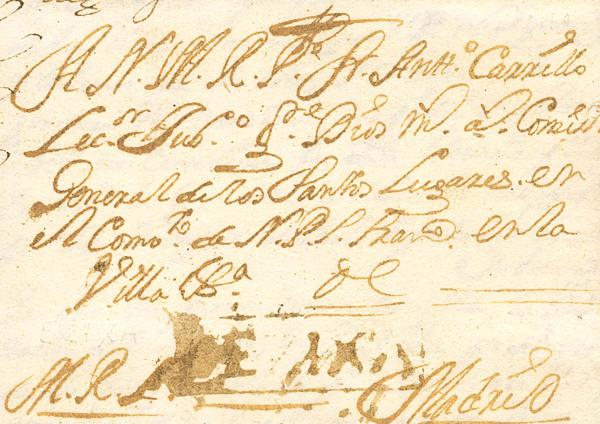 A N. M. R. P.e Fr. Antt.o Carrillo
Lec.or Jub.o g.de Dios m. a.s Comiss.
General de los Santos Lugares. en
el Comv.to de N. P. S. Franco. en la
Villa &.a de
M. R. Madrid